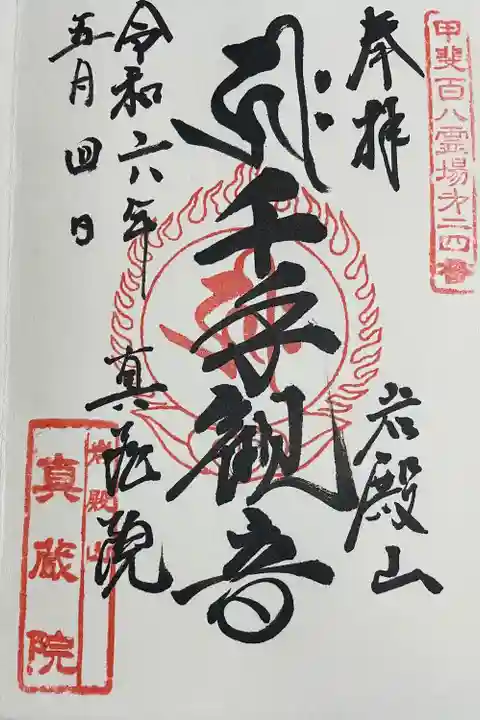 甲斐百八霊場第二四番
奉拝
岩殿山
千手観音
令和六年
五月四日
真蔵院
岩殿山
真蔵院